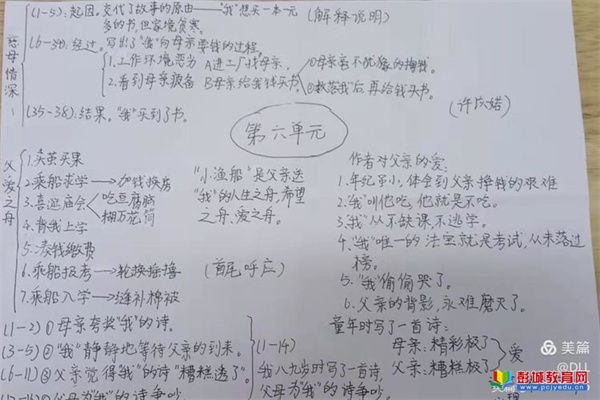 慈母情深
(1-5):起因,交代了故事的原由——"我"想买一本一元多的书,但家境贫寒。
(解释说明)
(6-34)经过。写出了"我"向母亲要钱的过程。
1.工作环境恶劣 A进工厂找母亲。
2.看到母亲疲惫 B母亲给我钱买书。
①母亲毫不犹豫的掏钱。
②数落"我"后再给钱买书。
(35-38):结果,"我"买到了书。
第六单元
父爱之舟
1.卖茧买果
2.乘船求学→加钱换房
3.喜逛庙会 吃豆腐脑
糊万花筒
4.背我上学
5.凑钱缴费
6.乘船报考→轮换摇橹
7.乘船入学→缝补棉被
"小渔船"是父亲送"我"的人生之舟,希望之舟、爱之舟。
(首尾呼应)
作者对父亲的爱:
1.年纪虽小,体会到父亲挣钱的艰难
2."我"叫他吃,他就是不吃。
3."我"从不缺课,不逃学。
4."我"唯一的法宝就是考试,从未落过榜。
5."我"偷偷哭了。
6.父亲的背影,永难磨灭了。
(1-2)①母亲夸奖"我"的诗。
(3-5)②"我"静静地等待父亲的到来。
(6-11)③父亲觉得"我"的诗"糟糕透了"。
父母为"我"的诗争吵
(1-14)
我八九岁时写了一首诗,
父母为"我"的诗争吵
童年时写了一首诗:
母亲:精彩极了
父亲:糟糕极了
爱
美篇
@DLL
彭城教育网
www.pcjyedu.cn